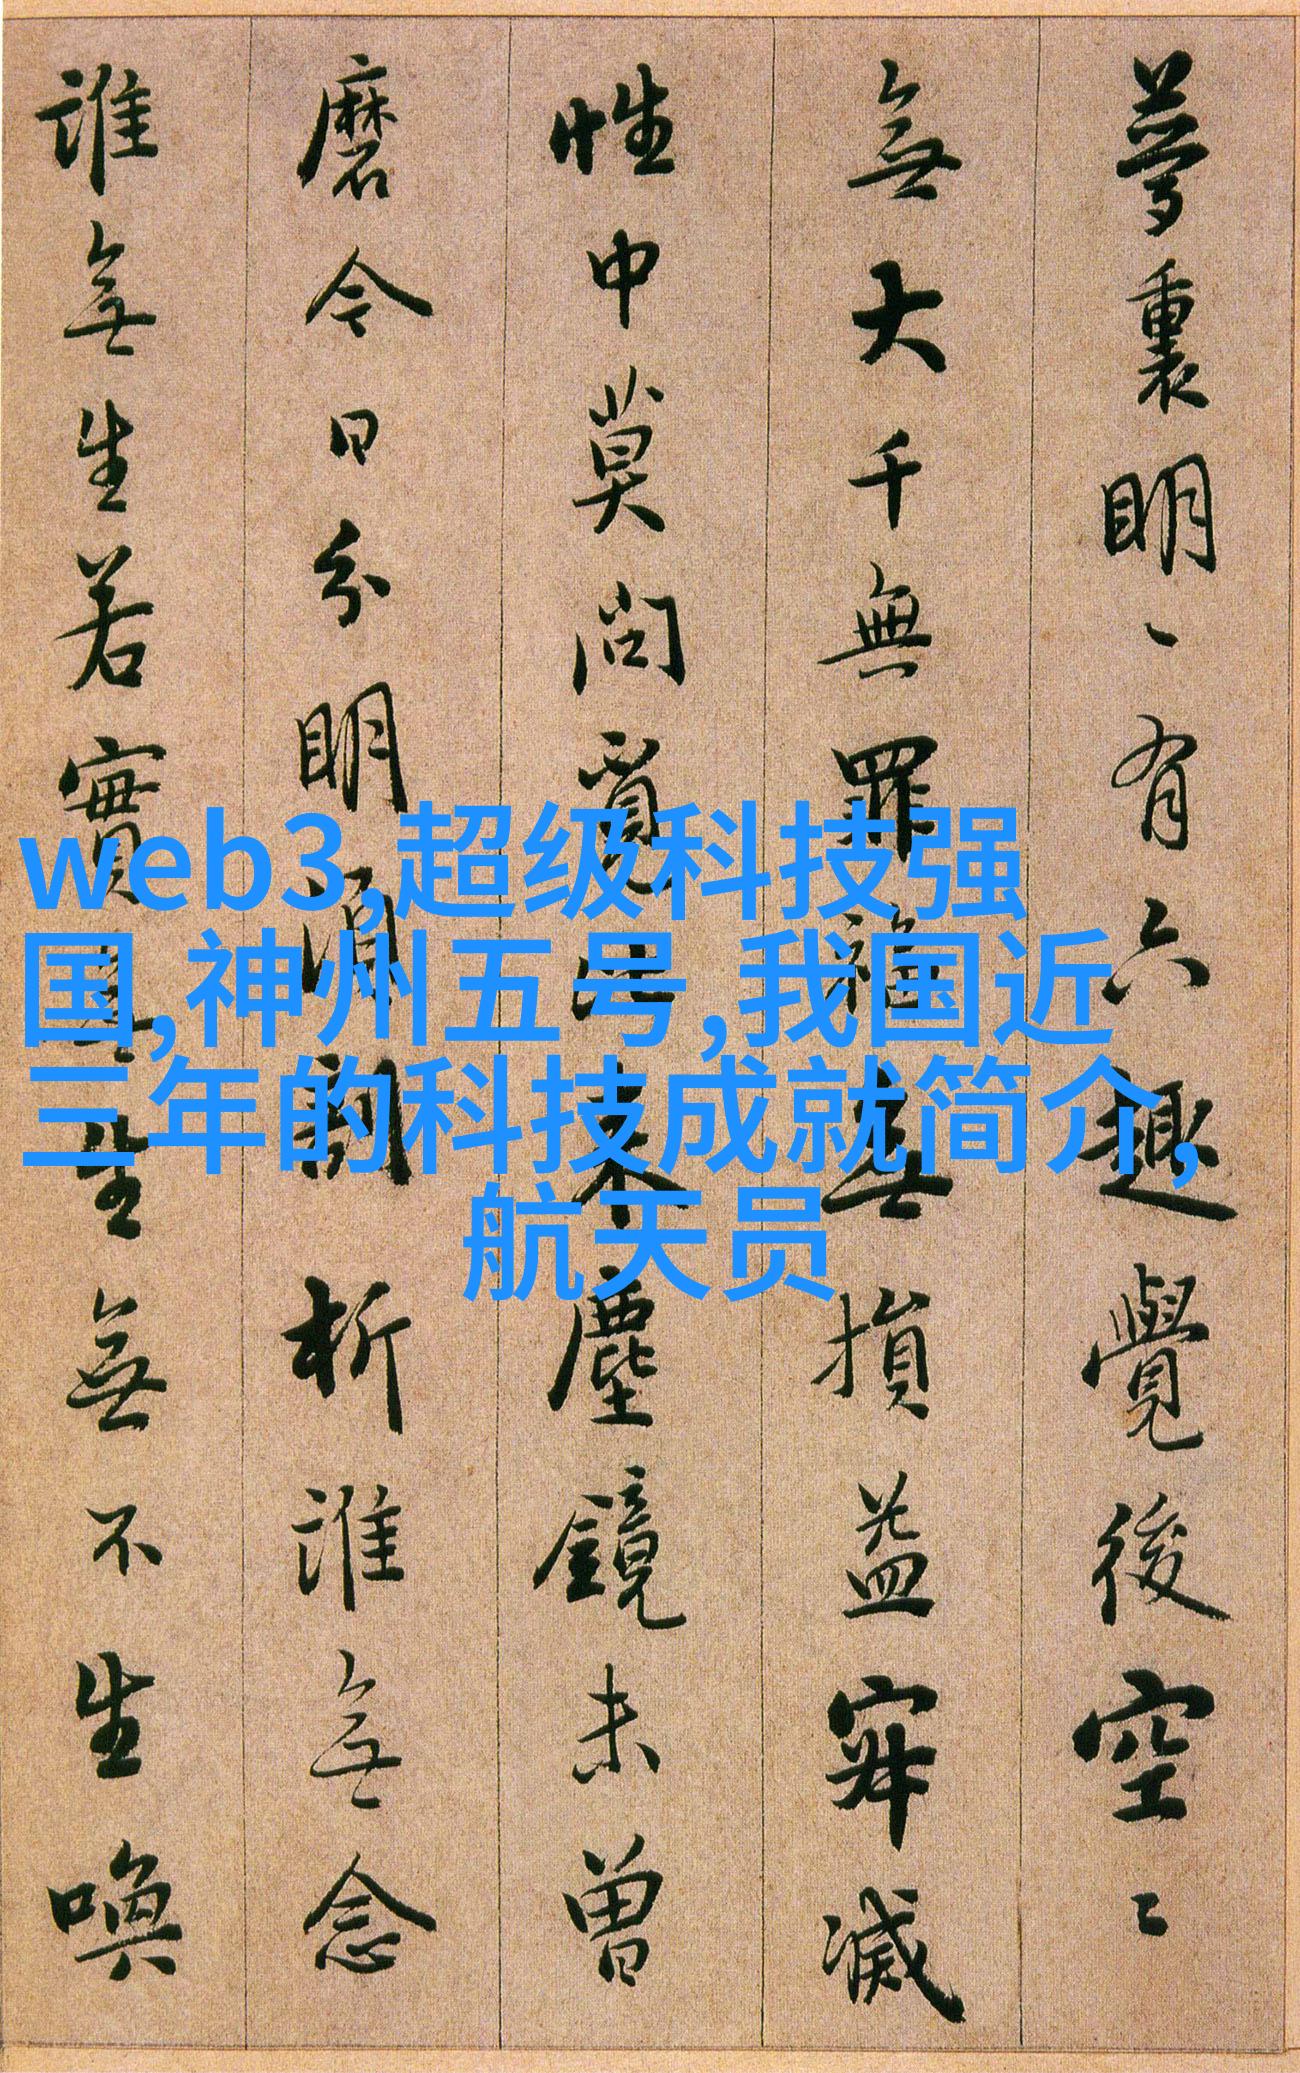 夢裏明〻有六趣覺後空〻
無大千無罪福無損益寂滅
性中莫問覓比來塵鏡未曾
磨今日分明須剖析誰無念
誰無生若實無生無不生喚
web3,超级科技强
国,神州五号,我国近
三年的科技成就简介,
航天员